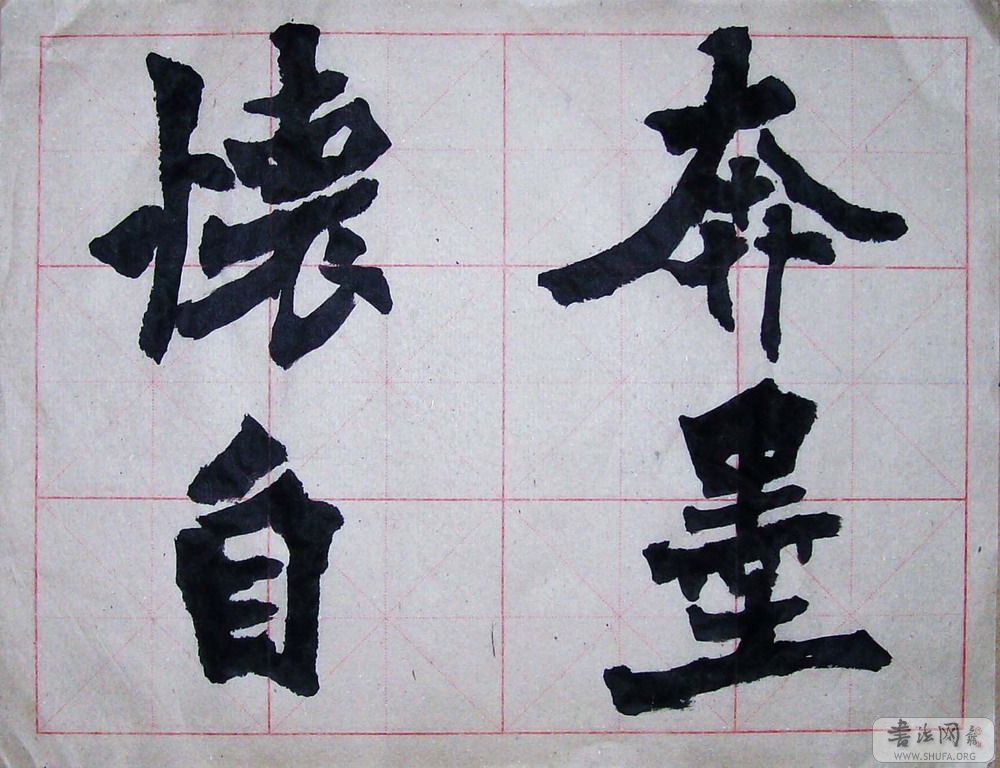 奔墨
懷自
書法网
WWW.SHUFA.ORG